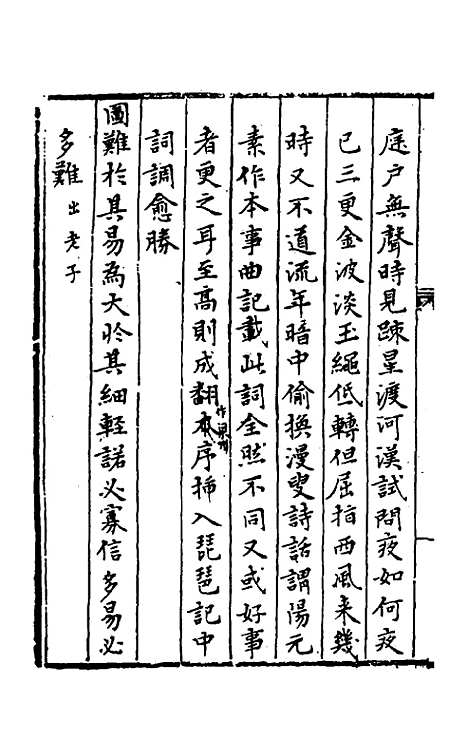 庭户無聲時見踈星渡河漢試問夜如何夜
已三更金波淡玉繩低轉但屈指西風来幾
時又不道流年暗中偷換漫叟詩話謂陽元
素作本事曲記載此詞全然不同又或好事
者更之耳至髙則成翻本序揷入琵琶記中
詞調愈勝
圖難於其易為大於其細輕諾必寡信多易必
多難出老子